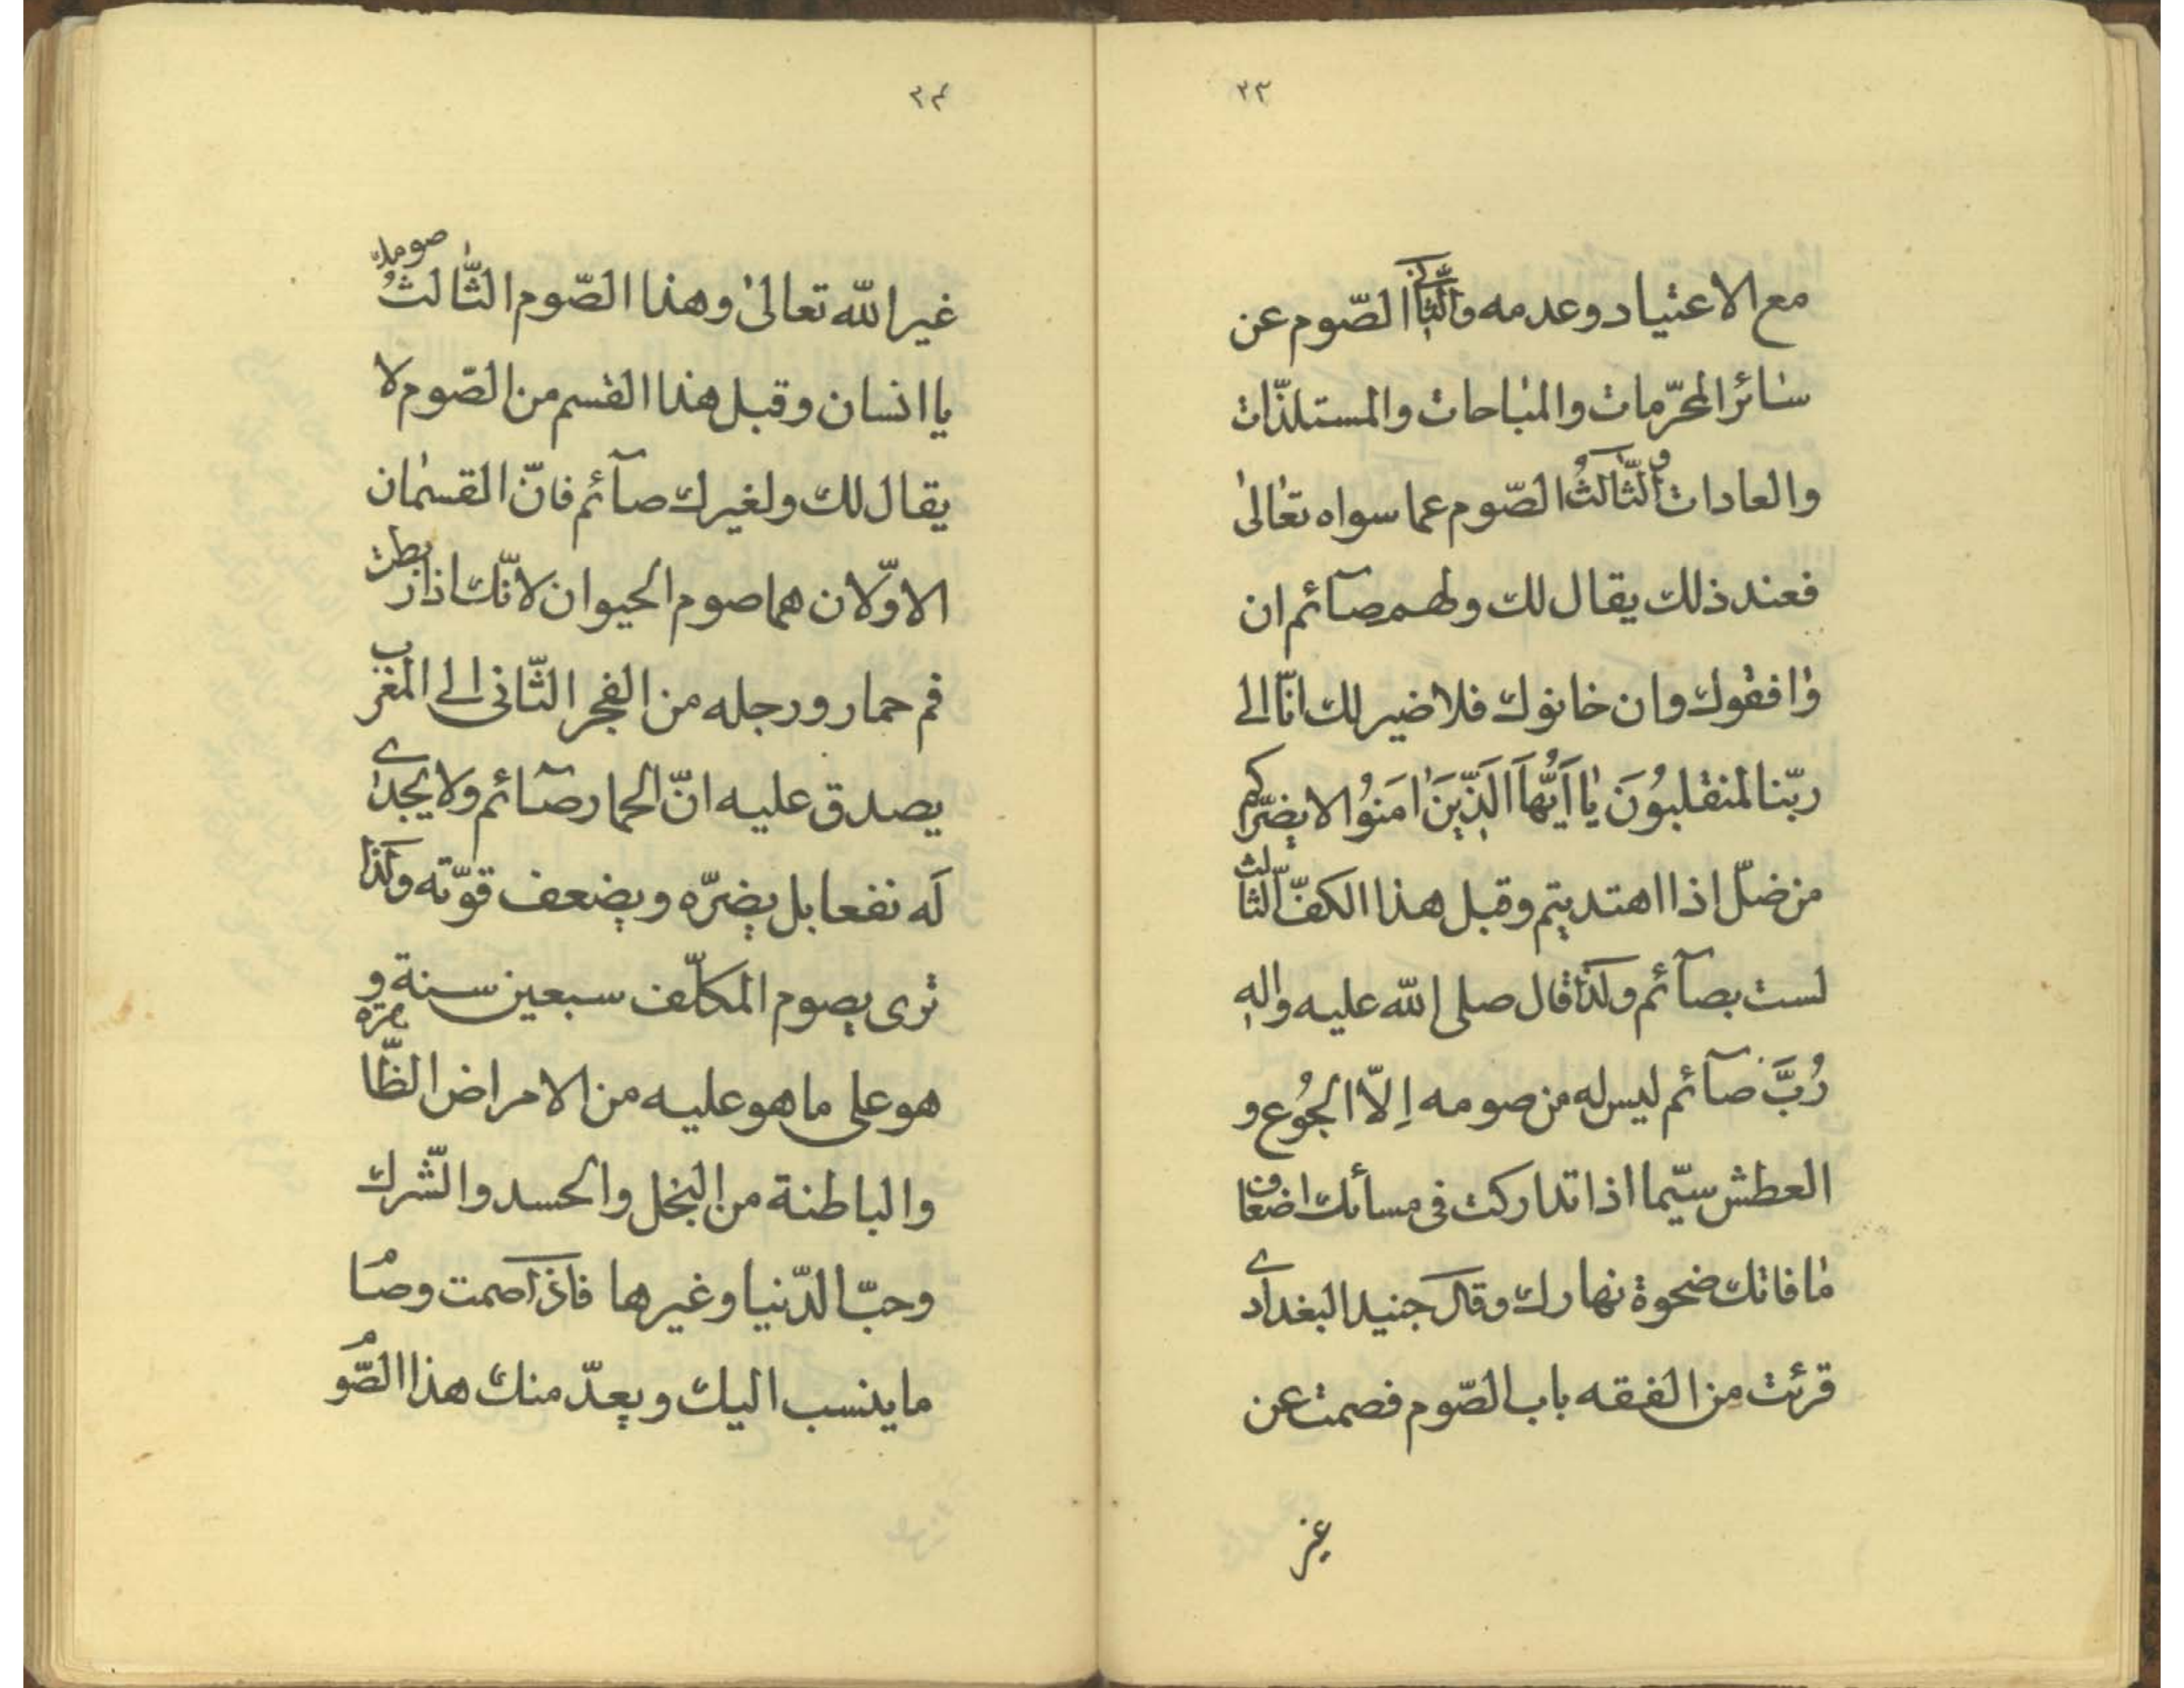 ٢٣
مع الاعتياد وعدمه والثّانى الصّوم عن
سٰائر المحرّمات والمبٰاحات والمستلذّات
والعادات والثّالثُ الصّوم عما سواه تعٰالىٰ
فعند ذلك يقال لك ولهم صآئم ان
وٰافقوك وان خانوك فلا ضير لك انّا الى
ربّنا لمنقلبُونَ يٰا اَيُّهاَ الَّذينَ اٰمَنوُا لا يضرّكم
من ضلّ اذا اهتديتم وقبل هذا الكفّ الثّالث
لست بصآئم ولذا قال صلى الله عليه واله
رُبَّ صآئم ليس له من صومه اِلاّ الجُوع و
العطش سيّما اذا تداركت فى مسائك اضعاف
مٰا فاتك ضحوة نهارك وقال جنيد البغدادى
قرئت من الفقه باب الصّوم فصمت عن
غير
٢٤
غير الله تعالىٰ وهذا الصّوم الثّالثُ صومك
يا انسان وقبل هذا القسم من الصّوم لا
يقال لك ولغيرك صآئم فانّ القسمٰان
الاوّلان هما صوم الحيوان لانّك اذا ربطت
فم حمار ورجله من الفجر الثّانى الى المغرب
يصدق عليه انّ الحمار صآئم ولا يجدى
لَه نفعا بل يضرّه ويضعف قوّته ولذا
ترى يصوم المكلّف سبعين سنة و
هو على ما هو عليه من الامراض الظّاهرة
والباطنة من البخل والحسد والشّرك
وحبّ الدّنيا وغيرها فاذا صمت وصام
ما ينسب اليك ويعدّ منك هذا الصّوم